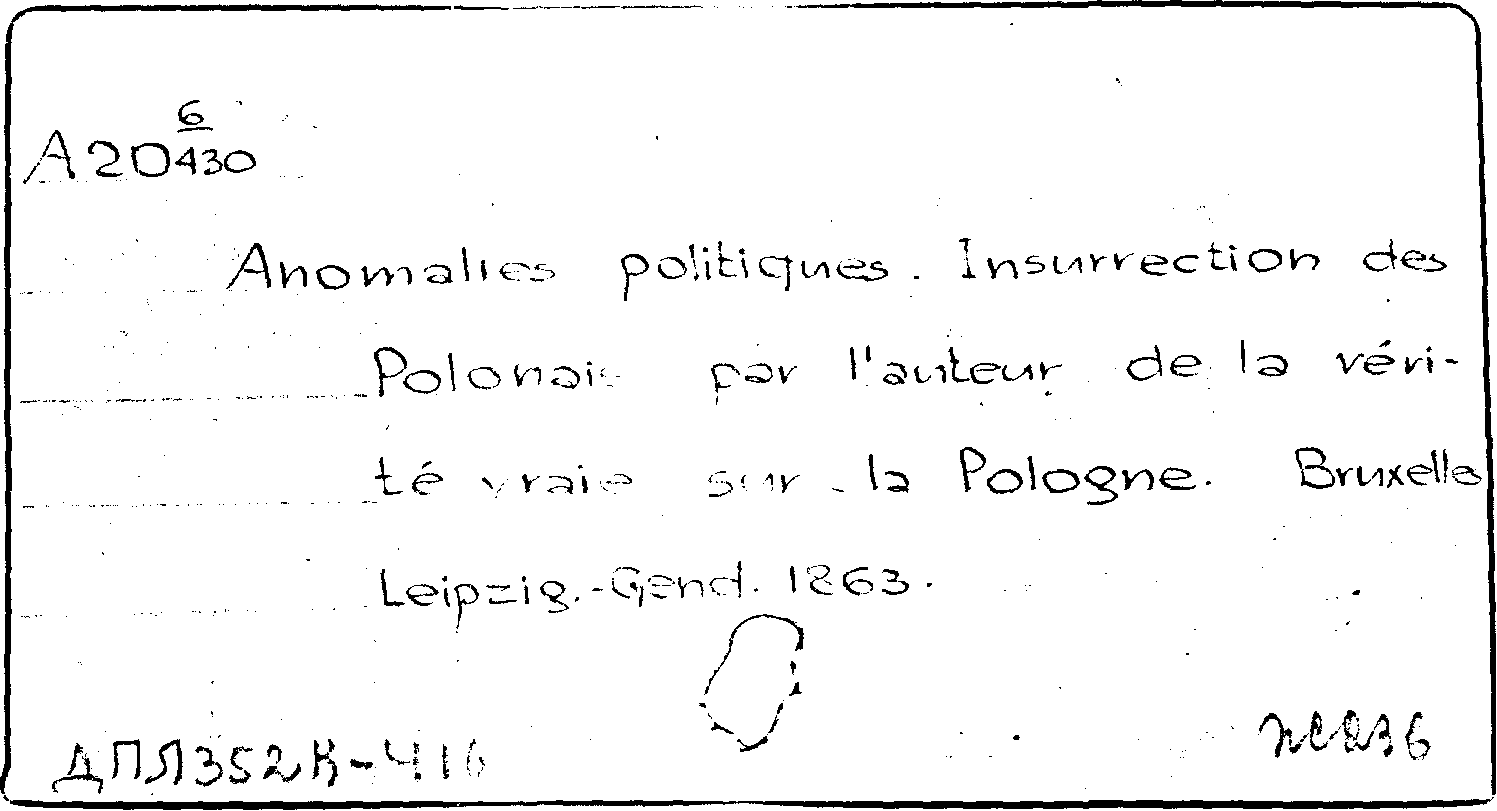 A20 6/430
Anomalies politiques. Insurrection des
Polonais par l'auteur de la véri-
té vraie sur la Pologne. Bruxelles
Leipzig.-Gand. 1863.
ДПЛ352К-416